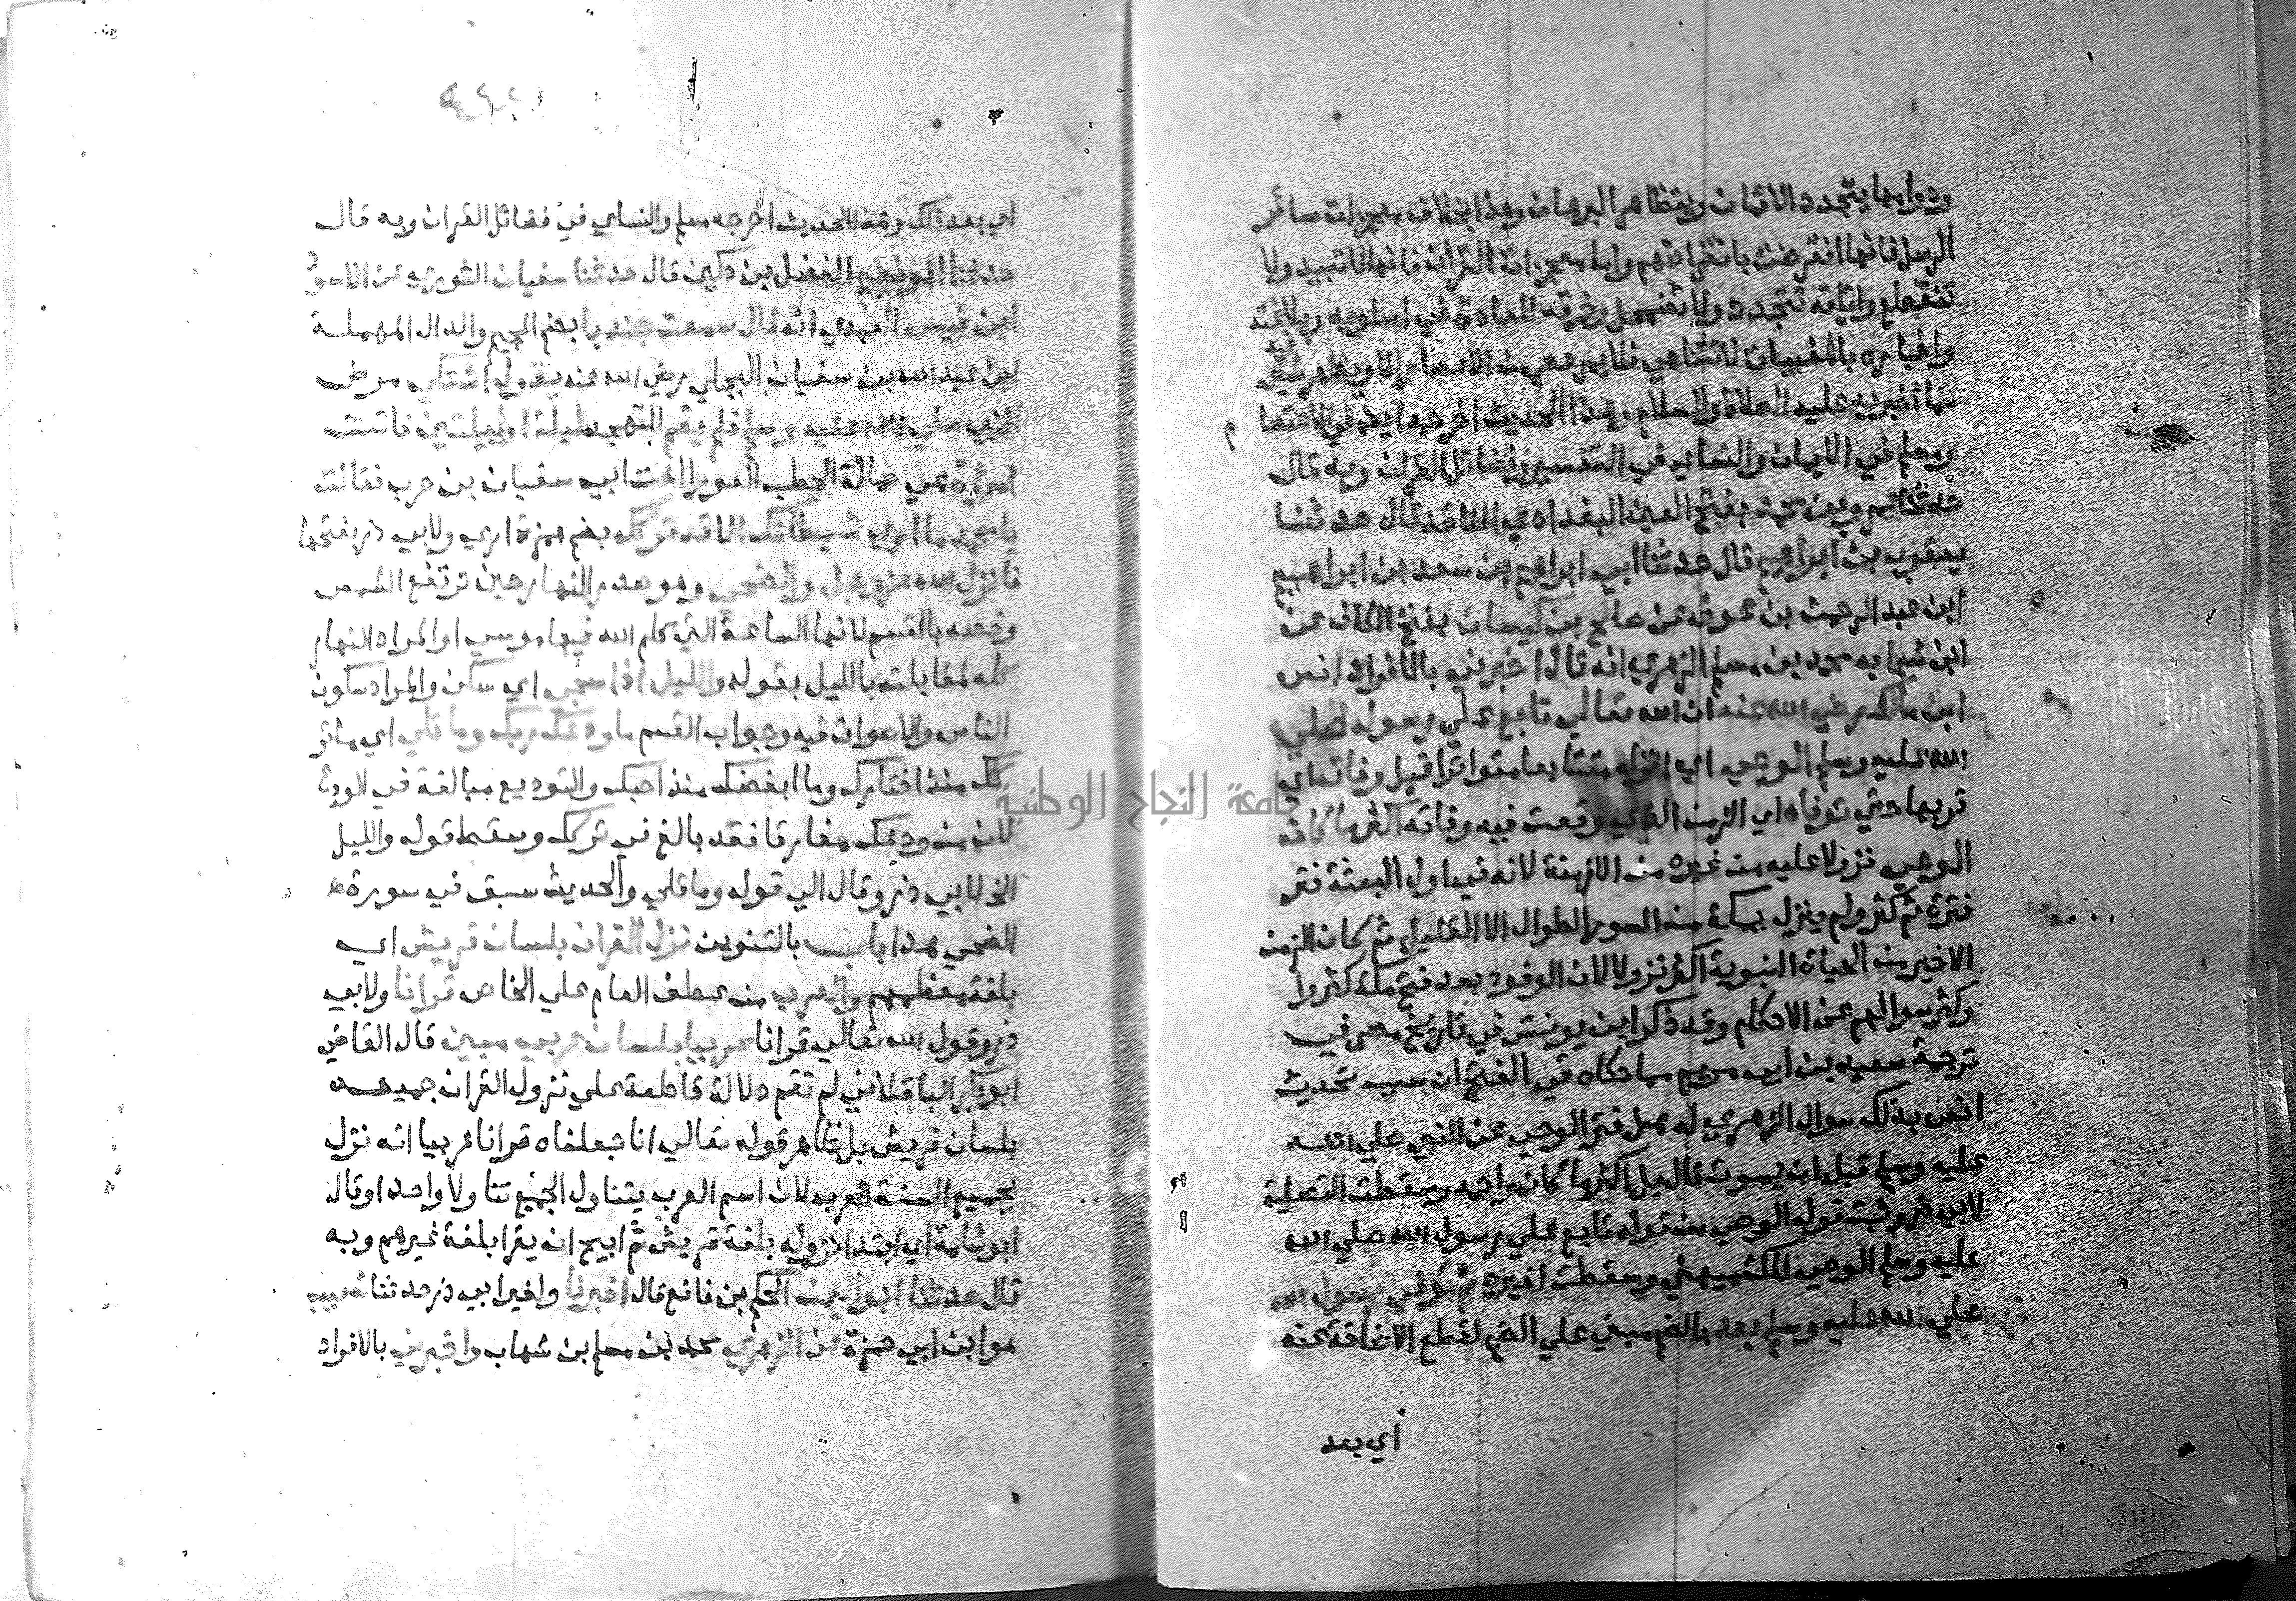 ودوامها يتجدد الايمان ويتظاهر البرهان وهذا بخلاف معجزات سائر
الرسل فانها انقرضت بانقراضهم واما معجزات القران فانها لا تبيد ولا
تنقطع واياته تتجدد ولا تضمحل وخرقه للعادة في اسلوبه وبلاغته
واخباره بالمغيبات لا تتناهي فلا يمر عصر من الاعصار الا ويظهر فيه شي
مما اخبر به عليه الصلاة والسلام وهذا الحديث اخرجه ايضا في الاعتصا م
ومسلم في الايمان والنساي في التفسير وفضائل القران وبه قال
حدثنا عمرو بن محمد بفتح العين البغدادي الناقد قال حدثنا
يعقوب بن ابراهيم قال حدثنا ابي ابراهيم بن سعد بن ابراهيم
ابن عبد الرحمن بن عوف عن صالح بن كيسان بفتح الكاف عن
ابن شهاب محمد بن مسلم الزهري انه قال اخبرني بالافراد انس
ابن مالك رضي الله عنه ان الله تعالي تابع علي رسوله صلي
الله عليه وسلم الوحي اي انزله متتابعا متواترا قبل وفاته اي
قربها حتي توفاه اي الزمن الذي وقعت فيه وفاته اكثر ما كان
الوحي نزولا عليه من غيره من الازمنة لانه في اول البعثة فتر
فترة ثم كثر ولم ينزل بمكة من السور الطوال الا القليل ثم كان الزمن
الاخير من الحياة النبوية اكثر نزولا لان الوفود بعد فتح مكة كثروا
وكثر سوالهم عن الاحكام وقد ذكر ابن يونس في تاريخ مصر في
ترجمة سعيد بن ابي مريم مما حكاه في الفتح ان سبب تحديث
انس بذلك سوال الزهري له هل فتر الوحي عن النبي صلي الله
عليه وسلم قبل ان يموت قال بل اكثر ما كان واحمه وسقطت التصلية
لابي ذر وثبت قوله الوحي من قوله تابع علي رسول الله صلي الله
عليه وسلم الوحي للكشميهني وسقطت لغيره ثم توفي رسول الله
صلي الله عليه وسلم بعد بالضم مبني علي الضم لقطع الاضافة عنه
أي بعد
اي بعد ذلك وهذا الحديث اخرجه مسلم والنساي في فضائل القران وبه قال
حدثنا ابو نعيم الفضل بن دكين قال حدثنا سفيان الثوري عن الاسود
ابن قيس العبدي انه قال سمعت جندبا بضم الجيم والدال المهملة
ابن عبد الله بن سفيان البجلي رضي الله عنه يقول اشتكي مرض
النبي صلي الله عليه وسلم فلم يقم للتهجد ليلة او ليلتين فاتت
امراة هي حمالة الحطب العورا اخت ابي سفيان بن حرب فقالت
يا محمد ما اري شيطانك الا قد تركك بضم همزة اري ولابي ذر بفتحها
فانزل الله عز وجل والضحي وهو صدر النهار حين ترتفع الشمس
وخصه بالقسم لانها الساعة التي كلم الله فيها موسي او المراد النهار
كله لمقابلته بالليل بقوله والليل اذا سجي اي سكن والمراد سكون
الناس والاصوات فيه وجواب القسم ما ودعك ربك وما قلي اي ما تر
كك منذ اختارك وما ابغضك منذ احبك والتوديع مبالغة في الودع
لان من ودعك مفارقا فقد بالغ في تركك وسقط قوله والليل
الخ لابي ذر وقال الي قوله وما قلي والحديث سبق في سورة
الضحي هذا باب بالتنوين نزل القران بلسان قريش اي
بلغة معظمهم والعرب من عطف العام علي الخاص قرانا ولابي
ذر وقول الله تعالي قرانا عربيا بلسان عربي مبين قال القاضي
ابو بكر الباقلاني لم تقم دلالة قاطعة علي نزول القران جميعه
بلسان قريش بل ظاهر قوله تعالي انا جعلناه قرانا عربيا انه نزل
بجميع السنة العرب لان اسم العرب يتناول الجميع تناولا واحدا وقال
ابو شامة اي ابتدا نزوله بلغة قريش ثم ابيح ان يقرا بلغة غيرهم وبه
قال حدثنا ابو اليمن الحكم بن نافع قال اخبرنا ولغير ابي ذر حدثنا شعيب
هو ابن ابي حمزة عن الزهري محمد بن مسلم بن شهاب واخبرني بالافراد
جامعة النجاح الوطنية